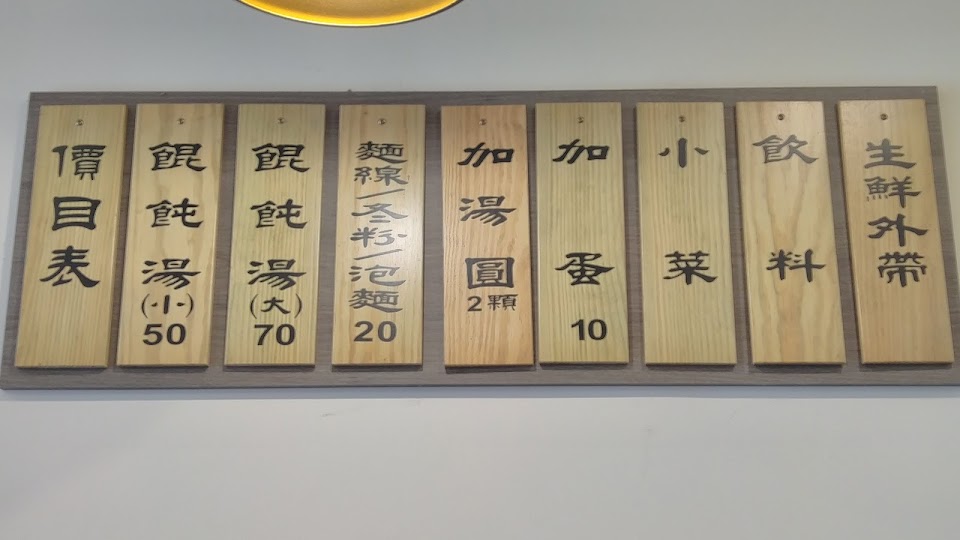 價目表
餛飩湯(小)50
餛飩湯(大)70
麵線/冬粉/泡麵20
加湯圓2顆
加蛋10
小菜
飲料
生鮮外帶